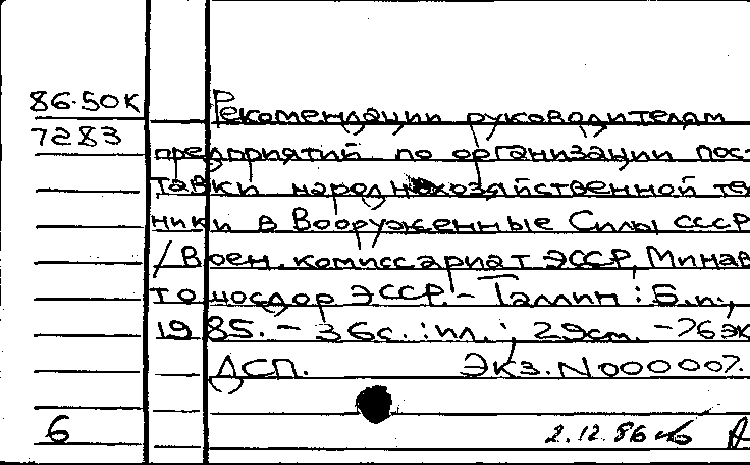 86-50К
7283
Рекомендации руководителям
предприятий по организации пос-
тавки народнохозяйственной тех
ники в Вооруженные Силы СССР
/ Воен. комиссариат ЭССР, Минав
тошосдор ЭССР. - Таллин : Б.и.,
1985. - 36с. : ил. ; 29см. - 76 эк
ДСП. Экз. N000007.
6
2.12.86